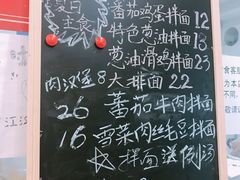 夏日
主食
番茄鸡蛋拌面12
特色葱油面13
葱油滑鸡拌面23
肉汉堡8
大排面22
26 番茄牛肉拌面
16 雪菜肉丝毛豆拌面
拌面送例汤